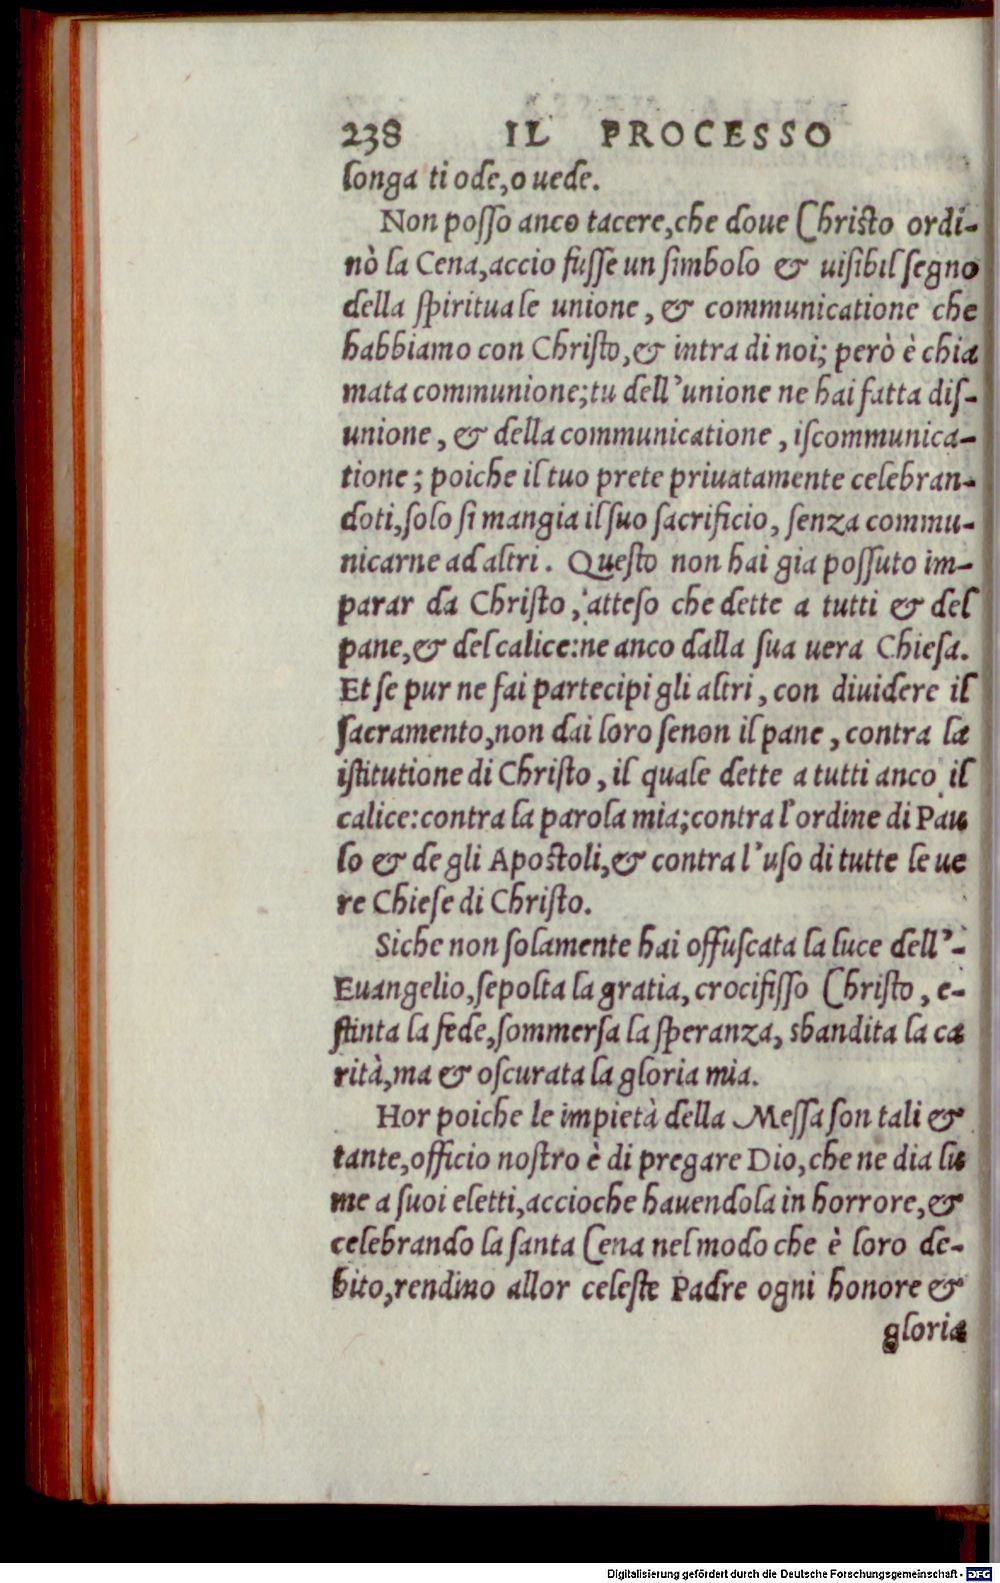 238 IL PROCESSO
longa ti ode, o uede.
Non posso anco tacere, che doue Christo ordi-
nò la Cena, accio fusse un simbolo & uisibil segno
della spirituale unione, & communicatione che
habbiamo con Christo, & intra di noi; però è chia
mata communione; tu dell'unione ne hai fatta dis-
unione, & della communicatione, iscommunica-
tione; poiche il tuo prete priuatamente celebran-
doti, solo si mangia il suo sacrificio, senza commu-
nicarne ad altri. Questo non hai gia possuto im-
parar da Christo, atteso che dette a tutti & del
pane, & del calice: ne anco dalla sua uera Chiesa.
Et se pur ne fai partecipi gli altri, con diuidere il
sacramento, non dai loro senon il pane, contra la
istitutione di Christo, il quale dette a tutti anco il
calice: contra la parola mia; contra l'ordine di Pau
lo & de gli Apostoli, & contra l'uso di tutte le ue
re Chiese di Christo.
Siche non solamente hai offuscata la luce dell'-
Euangelio, sepolta la gratia, crocifisso Christo, e-
stinta la fede, sommersa la speranza, sbandita la ca
rità, ma & oscurata la gloria mia.
Hor poiche le impietà della Messa son tali &
tante, officio nostro è di pregare Dio, che ne dia lu
me a suoi eletti, accioche hauendola in horrore, &
celebrando la santa Cena nel modo che è loro de-
bito, rendino allor celeste Padre ogni honore &
gloria
Digitalisierung gefördert durch die Deutsche Forschungsgemeinschaft - DFG